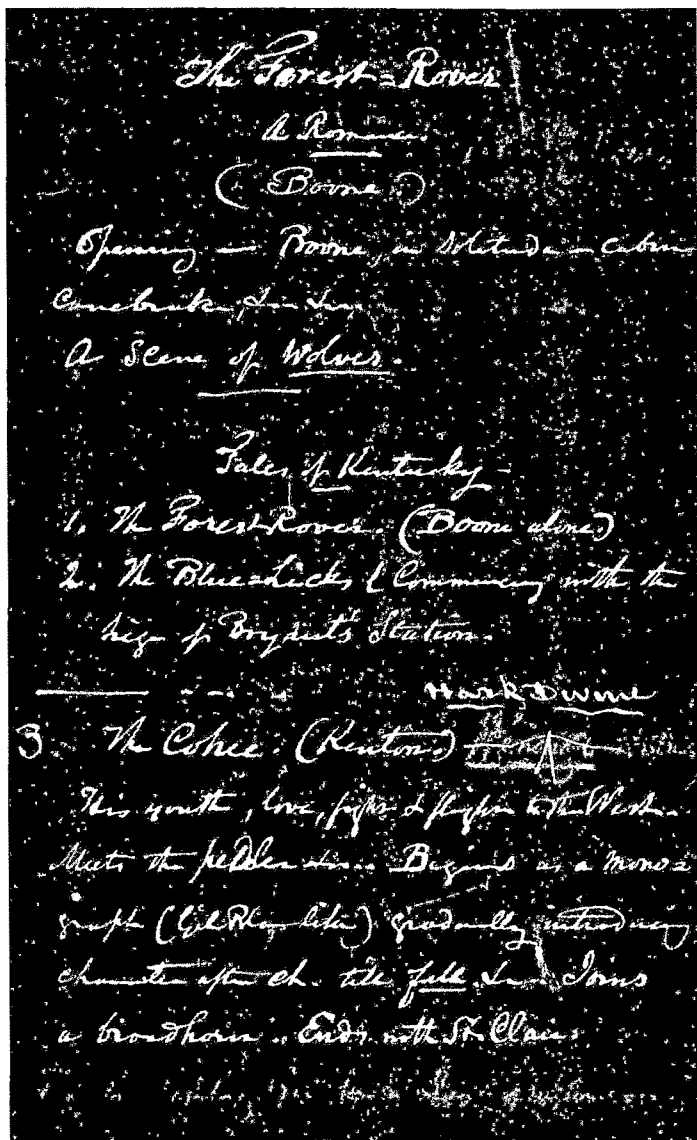 The Forest=Rover
A Romance
(Boone)
Opening — Boone, in Solitude — Cabin
Canebrake, &c &c
A Scene of Wolves.
Tales of Kentucky —
1. The Forest Rover (Boone alone)
2. The Blue=Licks & Commencing with the
Siege of Bryant's Station.
Mark Divine
3 The Cohee. (Kenton.)
His youth, love, fight & flight to the West.
Meets the pedler &c. Begins as a mono=
graph (Gil Blas like) gradually introducing
character after ch. till full &c. Joins
a broadhorn. Ends with St. Clair